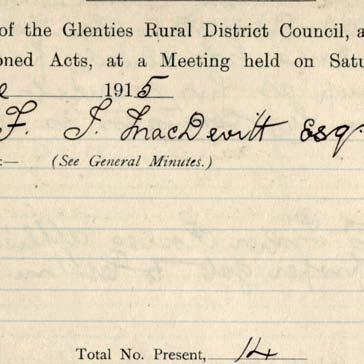 of the Glenties Rural District Council, a
oned Acts, at a Meeting held on Satu
e 1915
F. J. MacDevitt Esq.
:— (See General Minutes.)
Total No. Present, 14